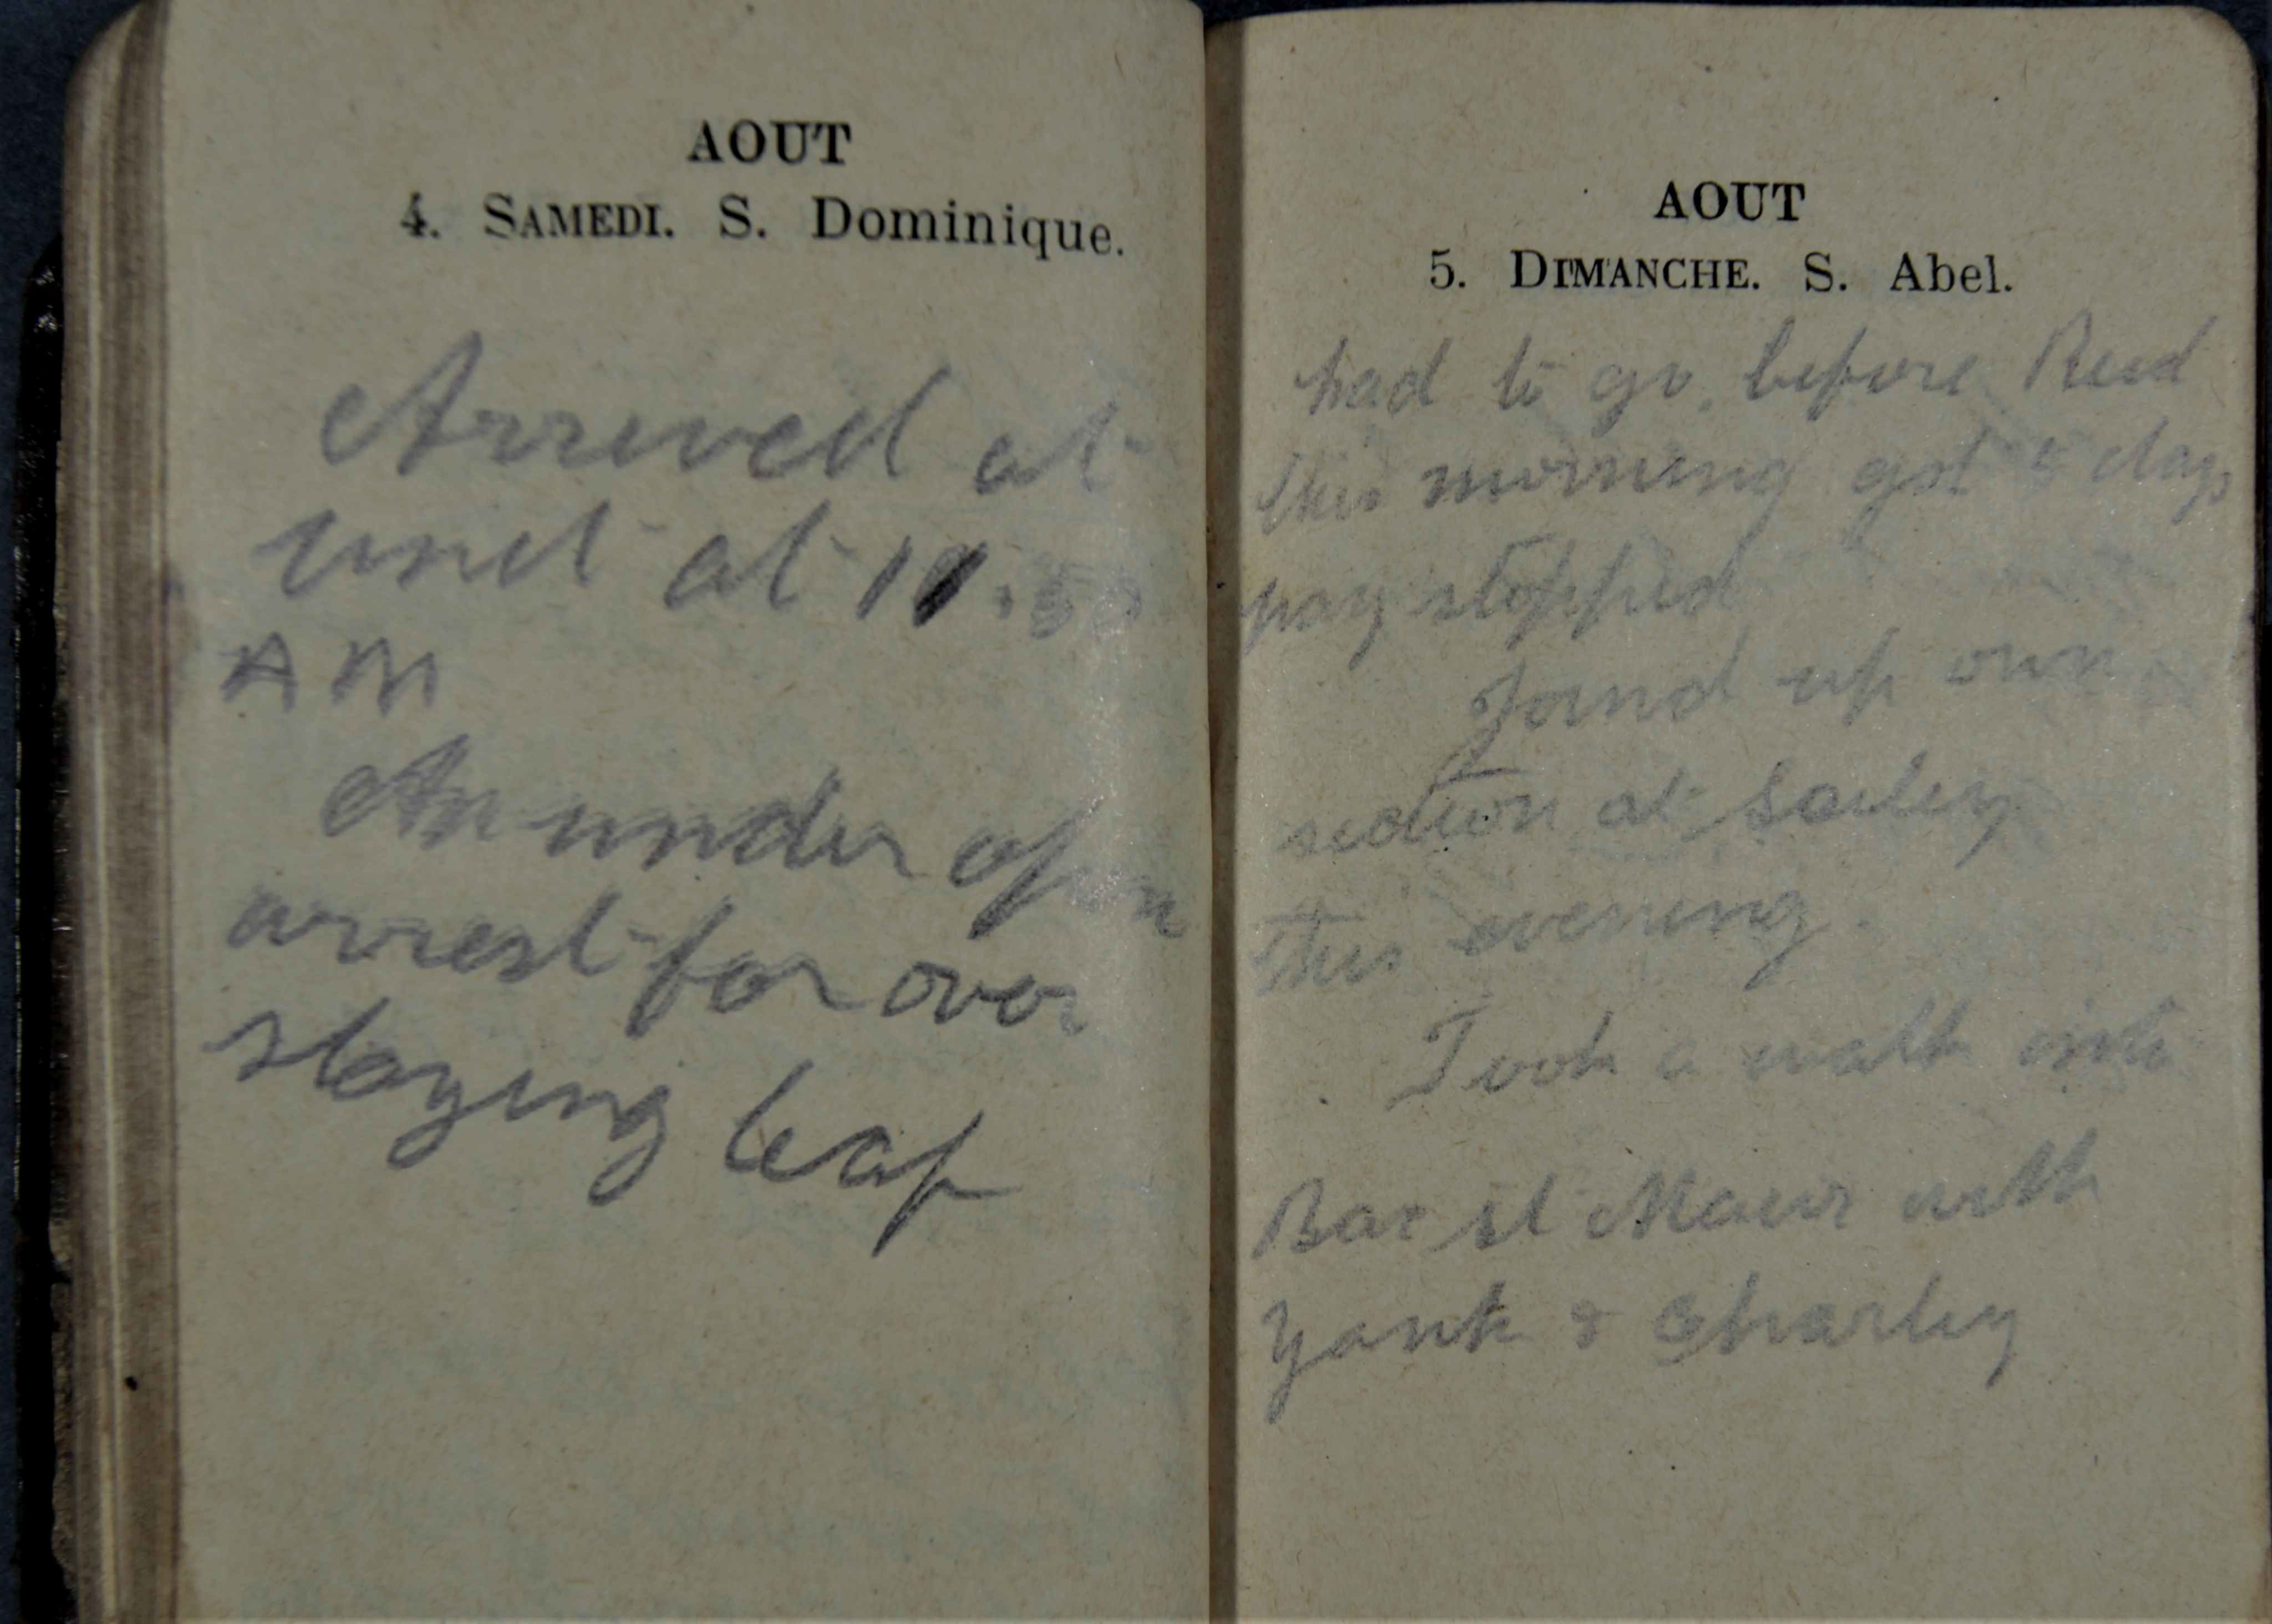 AOUT
4. SAMEDI. S. Dominique.
Arrived at
unit at 11.50
A M
Am under open
arrest for over
staying leaf
AOUT
5. DIMANCHE. S. Abel.
had to go before Reid
this morning got days
pay stopped
Joind up own
section at Sailey
this evening.
Took a walk into
Bac St Maur with
Yank & Charley